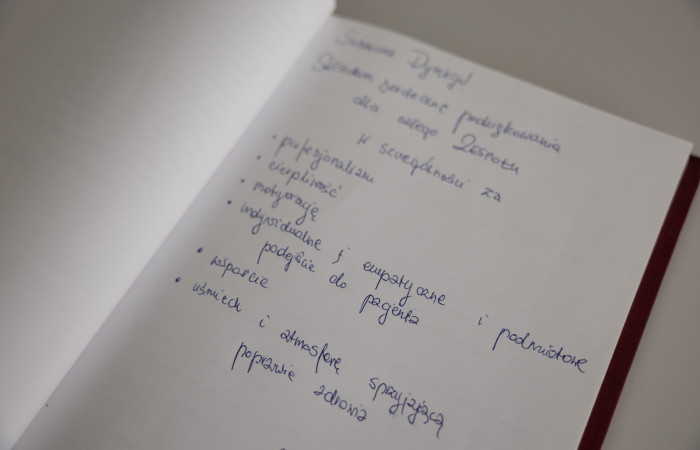 Szanowna Dyrekcjo
Składam serdeczne podziękowania
dla całego Zespołu
w szczególności za
• profesjonalizm
• cierpliwość
• motywację
• indywidualne i empatyczne i podmiotowe
podejście do pacjenta
• wsparcie
• uśmiech i atmosferę sprzyjającą
poprawie zdrowia